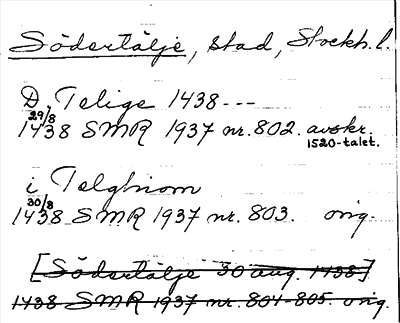 Södertälje, stad, Stockh. l.
D. Telige 1438 ---
29/8
1438 SMR 1937 nr. 802. avskr.
1520-talet.
i Telghiom
30/8
1438 SMR 1937 nr. 803. orig.
[Södertälje 30 aug. 1438]
1438 SMR 1937 nr. 804-805. orig.